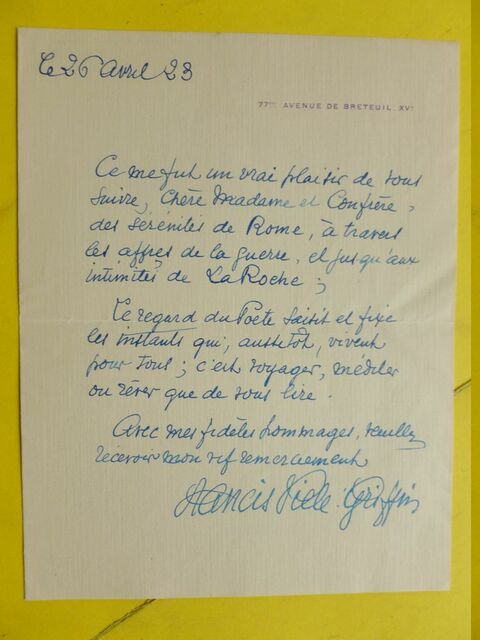 le 26 Avril 23
77bis AVENUE DE BRETEUIL. XVe
Ce me fut un vrai plaisir de vous
suivre, Chère Madame et Confrère,
des sérénités de Rome, à travers
les affres de la guerre, et jusqu'aux
intimités de La Roche ;
Le regard du Poète saisit et fixe
les instants qui, aussitôt, vivent
pour tous ; c'est voyager, méditer
ou rêver que de vous lire.
Avec mes fidèles hommages, veuillez
recevoir mon vif remerciement
Francis Vielé-Griffin